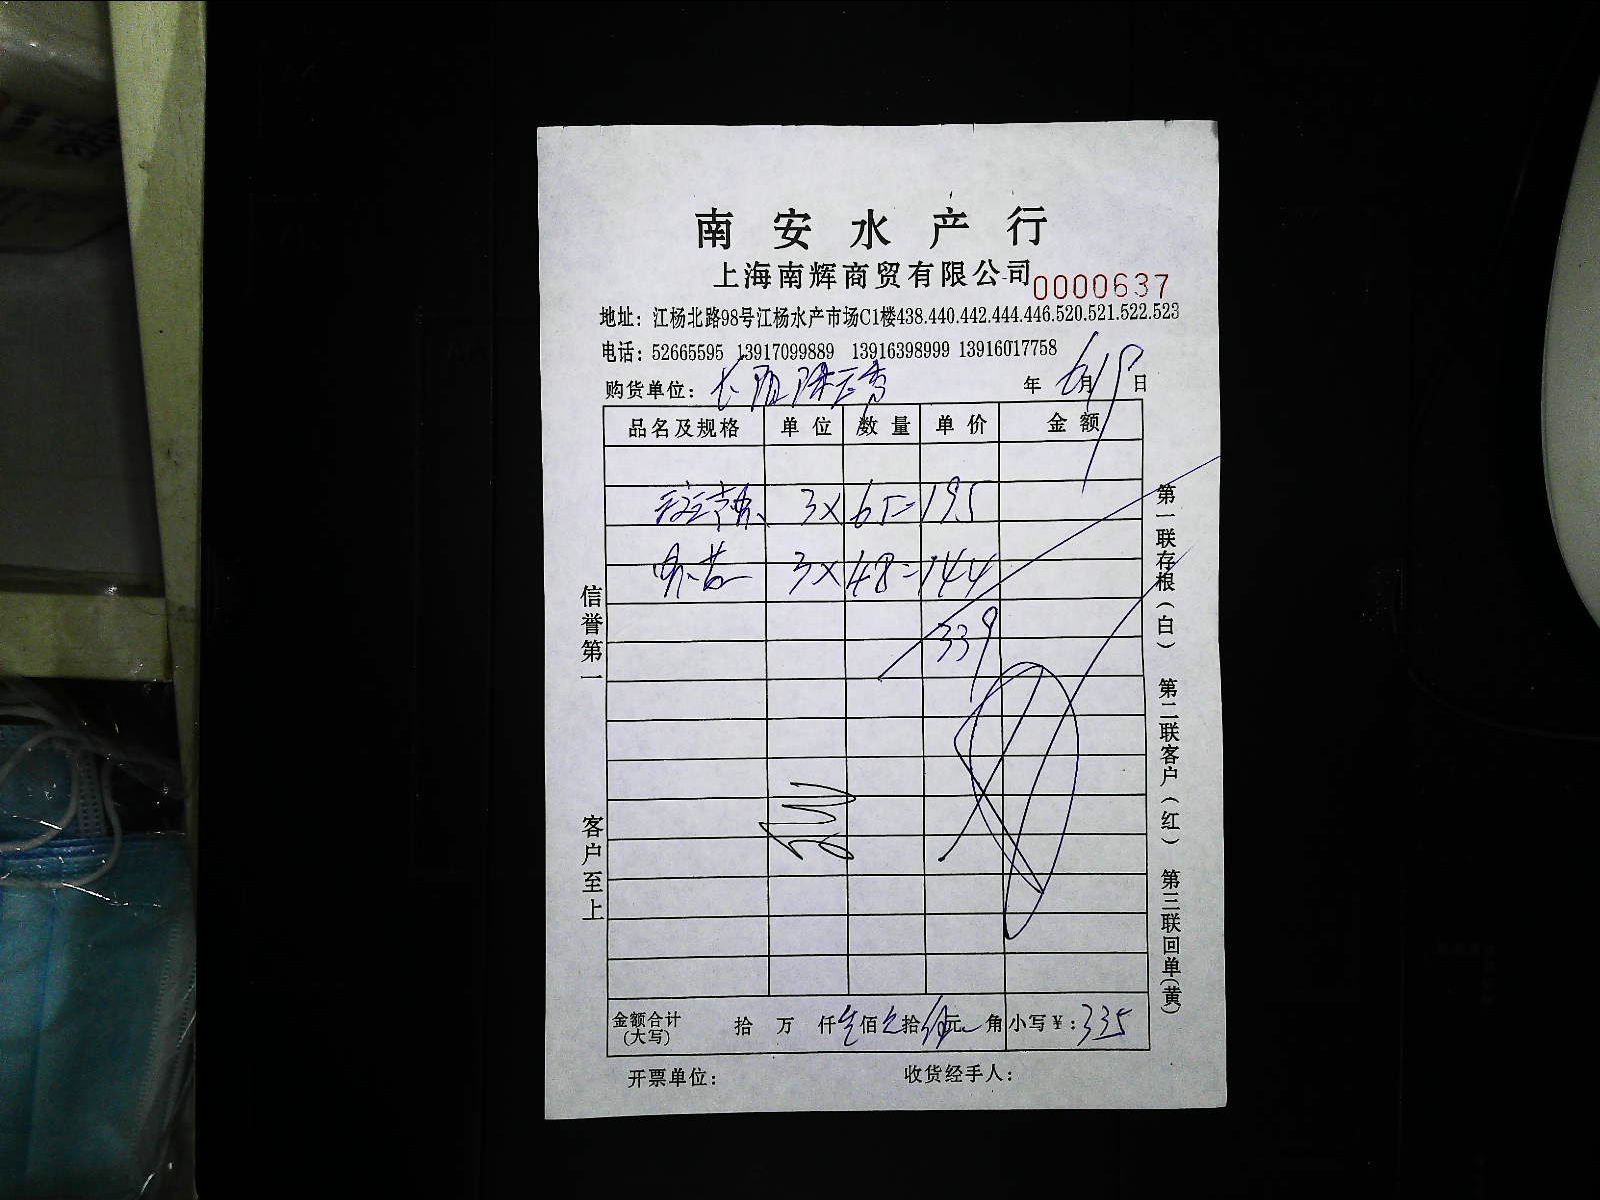 南安水产行
上海南辉商贸有限公司 0000637
地址：江杨北路98号江杨水产市场C1楼438.440.442.444.446.520.521.522.523
电话：52665595 13917099889 13916398999 13916017758
购货单位： 年 6月 日
品名及规格 单位 数量 单价 金额
3×65=195
3×48=144
339
金额合计(大写) 拾 万 仟 佰 拾 元 角 小写¥：335
开票单位： 收货经手人：
信誉第一 客户至上
第一联存根(白) 第二联客户(红) 第三联回单(黄)